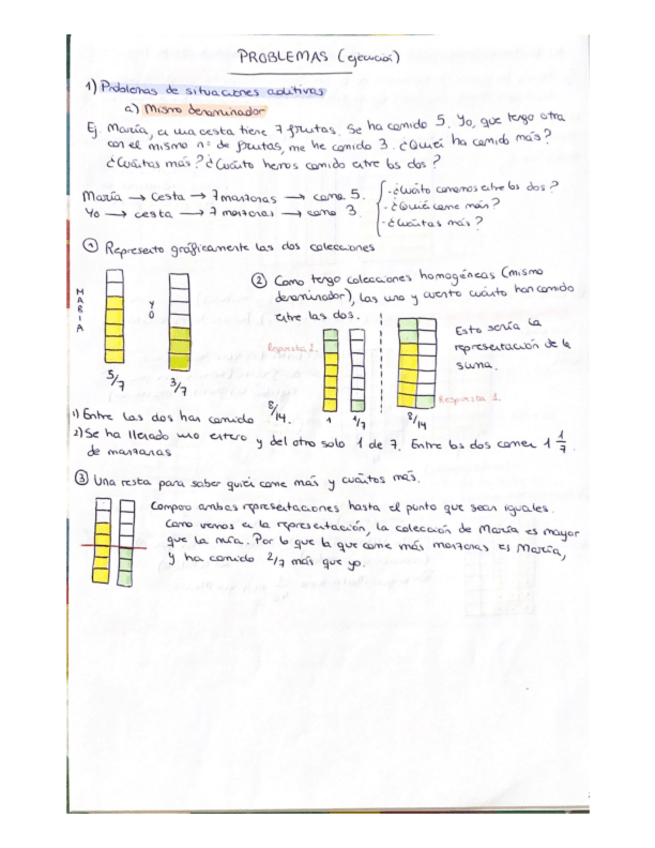 PROBLEMAS (ejecución)
1) Problemas de situaciones aditivas
a) Mismo denominador
Ej. María, en una cesta tiene 7 frutas. Se ha comido 5. Yo, que tengo otra
con el mismo nº de frutas, me he comido 3. ¿Quién ha comido más?
¿Cuántas más? ¿Cuánto hemos comido entre los dos?
María → cesta → 7 manzanas → come 5.
Yo → cesta → 7 manzanas → come 3.
- ¿Cuánto comemos entre los dos?
- ¿Quién come más?
- ¿Cuántas más?
① Represento gráficamente las dos colecciones
MARIA
YO
5/7
3/7
② Como tengo colecciones homogéneas (mismo
denominador), las uno y cuento cuánto han comido
entre las dos.
Respuesta 2.
8/14
1
1/7
8/14
Esto sería la
representación de la
suma.
Respuesta 1.
1) Entre las dos han comido 8/14.
2) Se ha llenado uno entero y del otro solo 1 de 7. Entre los dos comen 1 1/7
de manzanas
③ Una resta para saber quién come más y cuántos más.
Comparo ambas representaciones hasta el punto que sean iguales.
Como vemos en la representación, la colección de María es mayor
que la mía. Por lo que la que come más manzanas es María,
y ha comido 2/7 más que yo.